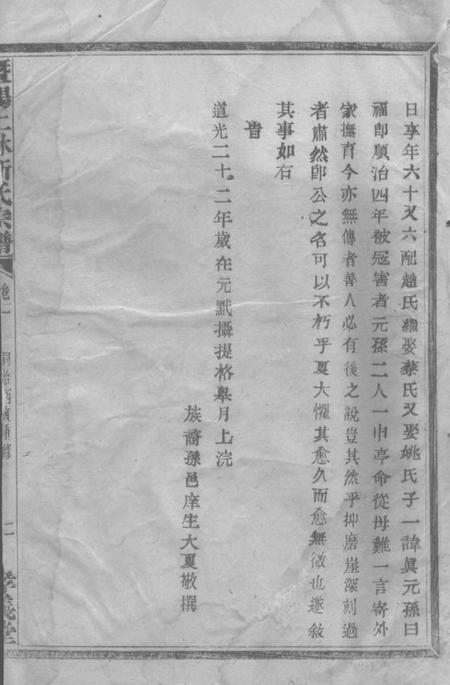 日享年六十又六配趙氏續娶蔡氏又娶姚氏子一諱眞元孫曰
福卽順治四年被寇害者元孫二人一申亭命從母難一言寄外
家撫育今亦無傳者善人必有後之說豈其然乎抑磨崖深刻過
者肅然卽公之名可以不朽乎夏大懼其愈久而愈無徵也遂敘
其事如右
旹
道光二十二年歲在元黓攝提格皋月上浣
族裔孫邑庠生大夏敬撰
暨陽上林斯氏宗譜
卷二
同治丙寅重修
二
孝義堂